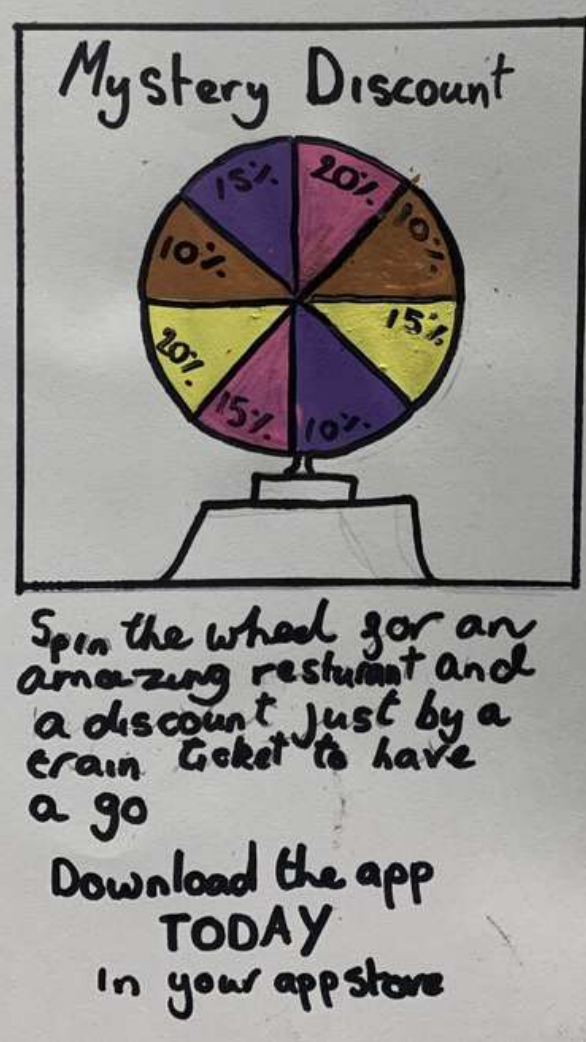 Mystery Discount
15% 20%
10% 10%
20% 15%
15% 10%
Spin the wheel for an
amazing resturant and
a discount just by a
train ticket to have
a go
Download the app
TODAY
in your appstore